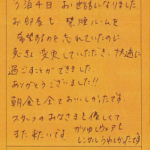 3泊4日 お世話になりました
お部屋も 禁煙ルームを
希望するのを忘れていたのに
変更していただき、快適に
過ごすことができました
ありがとうございました!!
朝食も全ておいしかったです
スタッフのみなさまも優しくて
また来たいです